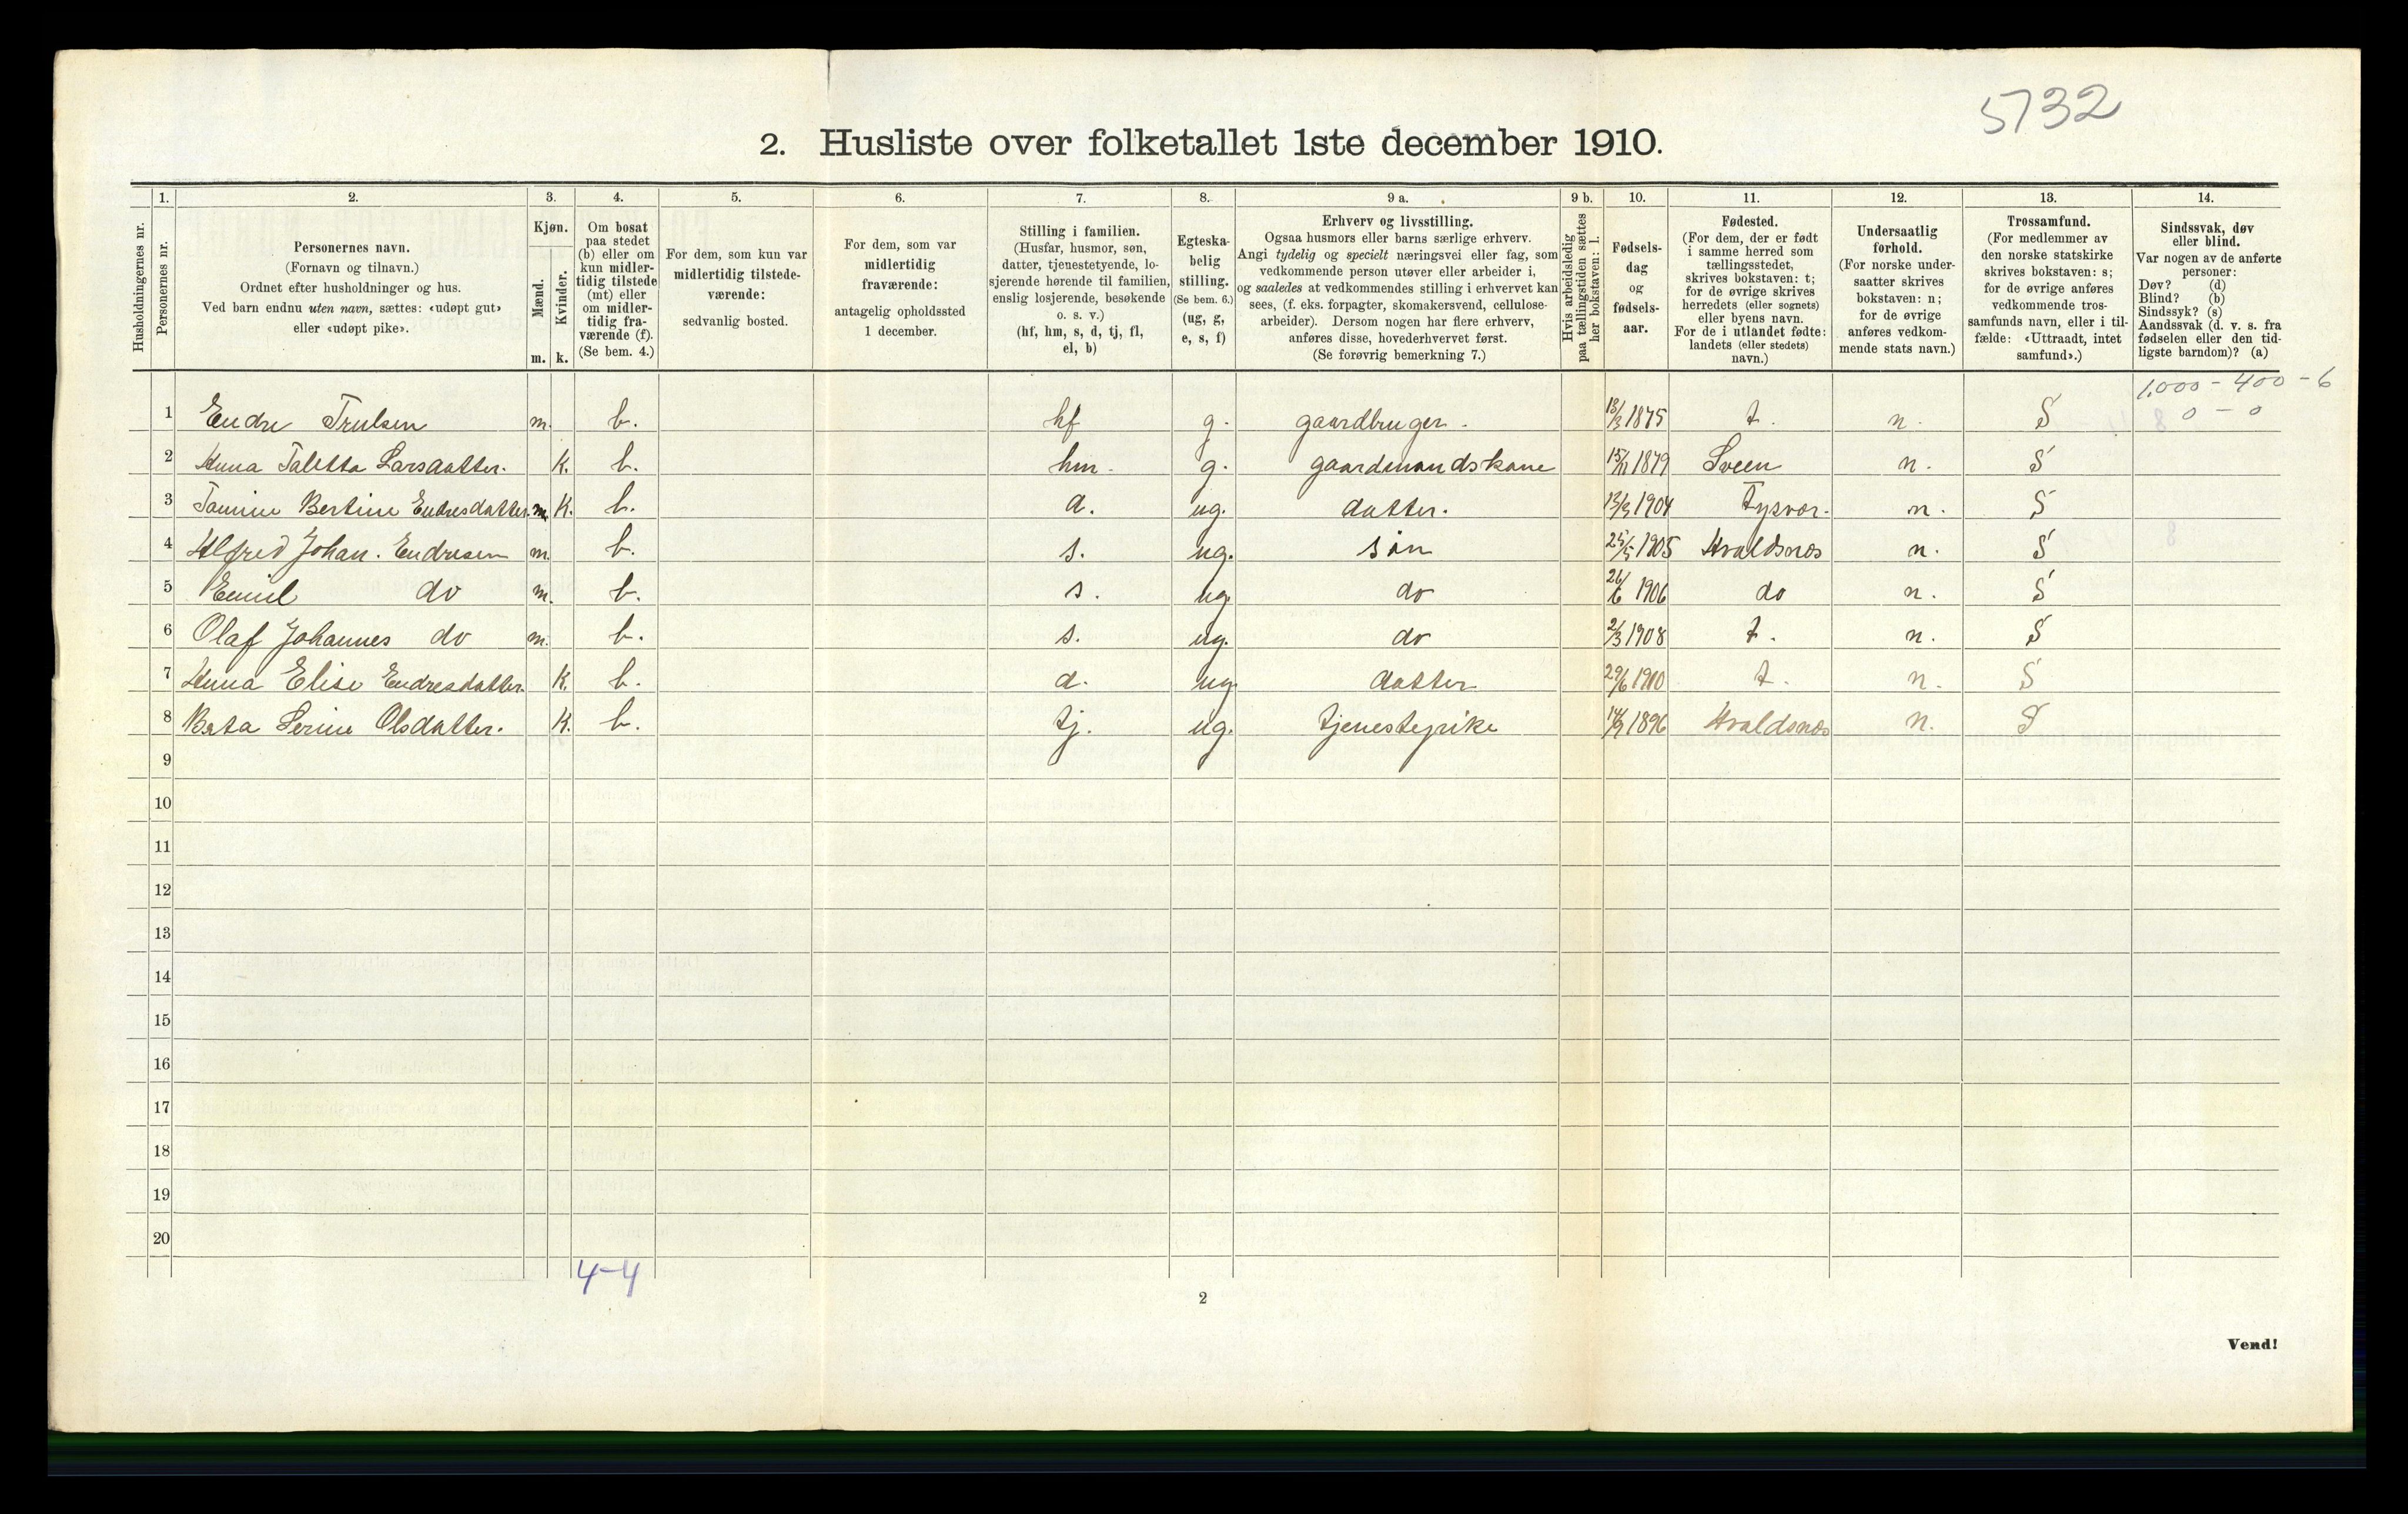 5732
2. Husliste over folketallet 1ste december 1910.
Husholdningernes nr.
1. Personernes nr.
2. Personernes navn.
(Fornavn og tilnavn.)
Ordnet efter husholdninger og hus.
Ved barn endnu uten navn, sættes: «udøpt gut»
eller «udøpt pike».
3. Kjøn.
Mænd. m.
Kvinder. k.
4. Om bosat
paa stedet
(b) eller om
kun midler-
tidig tilstede
(mt) eller
om midler-
tidig fra-
værende (f).
(Se bem. 4.)
5. For dem, som kun var
midlertidig tilstede-
værende:
sedvanlig bosted.
6. For dem, som var
midlertidig
fraværende:
antagelig opholdssted
1 december.
7. Stilling i familien.
(Husfar, husmor, søn,
datter, tjenestetyende, lo-
sjerende hørende til familien,
enslig losjerende, besøkende
o. s. v.)
(hf, hm, s, d, tj, fl,
el, b)
8. Egteska-
belig
stilling.
(Se bem. 6.)
(ug, g,
e, s, f)
9 a. Erhverv og livsstilling.
Ogsaa husmors eller barns særlige erhverv.
Angi tydelig og specielt næringsvei eller fag, som
vedkommende person utøver eller arbeider i,
og saaledes at vedkommendes stilling i erhvervet kan
sees, (f. eks. forpagter, skomakersvend, cellulose-
arbeider). Dersom nogen har flere erhverv,
anføres disse, hovederhvervet først.
(Se forøvrig bemerkning 7.)
9 b. Hvis arbeidsledig
paa tællingstiden sættes
her bokstaven: l.
10. Fødsels-
dag
og
fødsels-
aar.
11. Fødested.
(For dem, der er født
i samme herred som
tællingsstedet,
skrives bokstaven: t;
for de øvrige skrives
herredets (eller sognets)
eller byens navn.
For de i utlandet fødte:
landets (eller stedets)
navn.)
12. Undersaatlig
forhold.
(For norske under-
saatter skrives
bokstaven: n;
for de øvrige
anføres vedkom-
mende stats navn.)
13. Trossamfund.
(For medlemmer av
den norske statskirke
skrives bokstaven: s;
for de øvrige anføres
vedkommende tros-
samfunds navn, eller i til-
fælde: «Uttraadt, intet
samfund».)
14. Sindssvak, døv
eller blind.
Var nogen av de anførte
personer:
Døv? (d)
Blind? (b)
Sindssyk? (s)
Aandssvak (d. v. s. fra
fødselen eller den tid-
ligste barndom)? (a)
1,000 - 400 - 6
0 - 0
1 Endre Trulsen m. b. hf g. gaardbruger. 1875 t. n. S
2 Anna Taletta Larsdatter. K. b. hm. g. gaardmandskone 15/11 1879 Sveen n. S
3 Tomine Bertine Endresdatter. K. b. d. ug. datter. 1904 Tysvær. n. S
4 Alfred Johan. Endresen m. b. s. ug. søn 25/5 1905 Hvaldsnes n. S
5 Emil do m. b. s. ug. do 26/6 1906 do n. S
6 Olaf Johannes do m. b. s. ug. do 2/3 1908 t. n. S
7 Anna Elise Endresdatter. K. b. d. ug. datter 29/6 1910 t. n. S
8 Berta Serine Olsdatter. K. b. tj. ug. tjenestepike 14/9 1896 Hvaldsnes n. S
9
10
11
12
13
14
15
16
17
18
19
20
4-4
2
Vend!